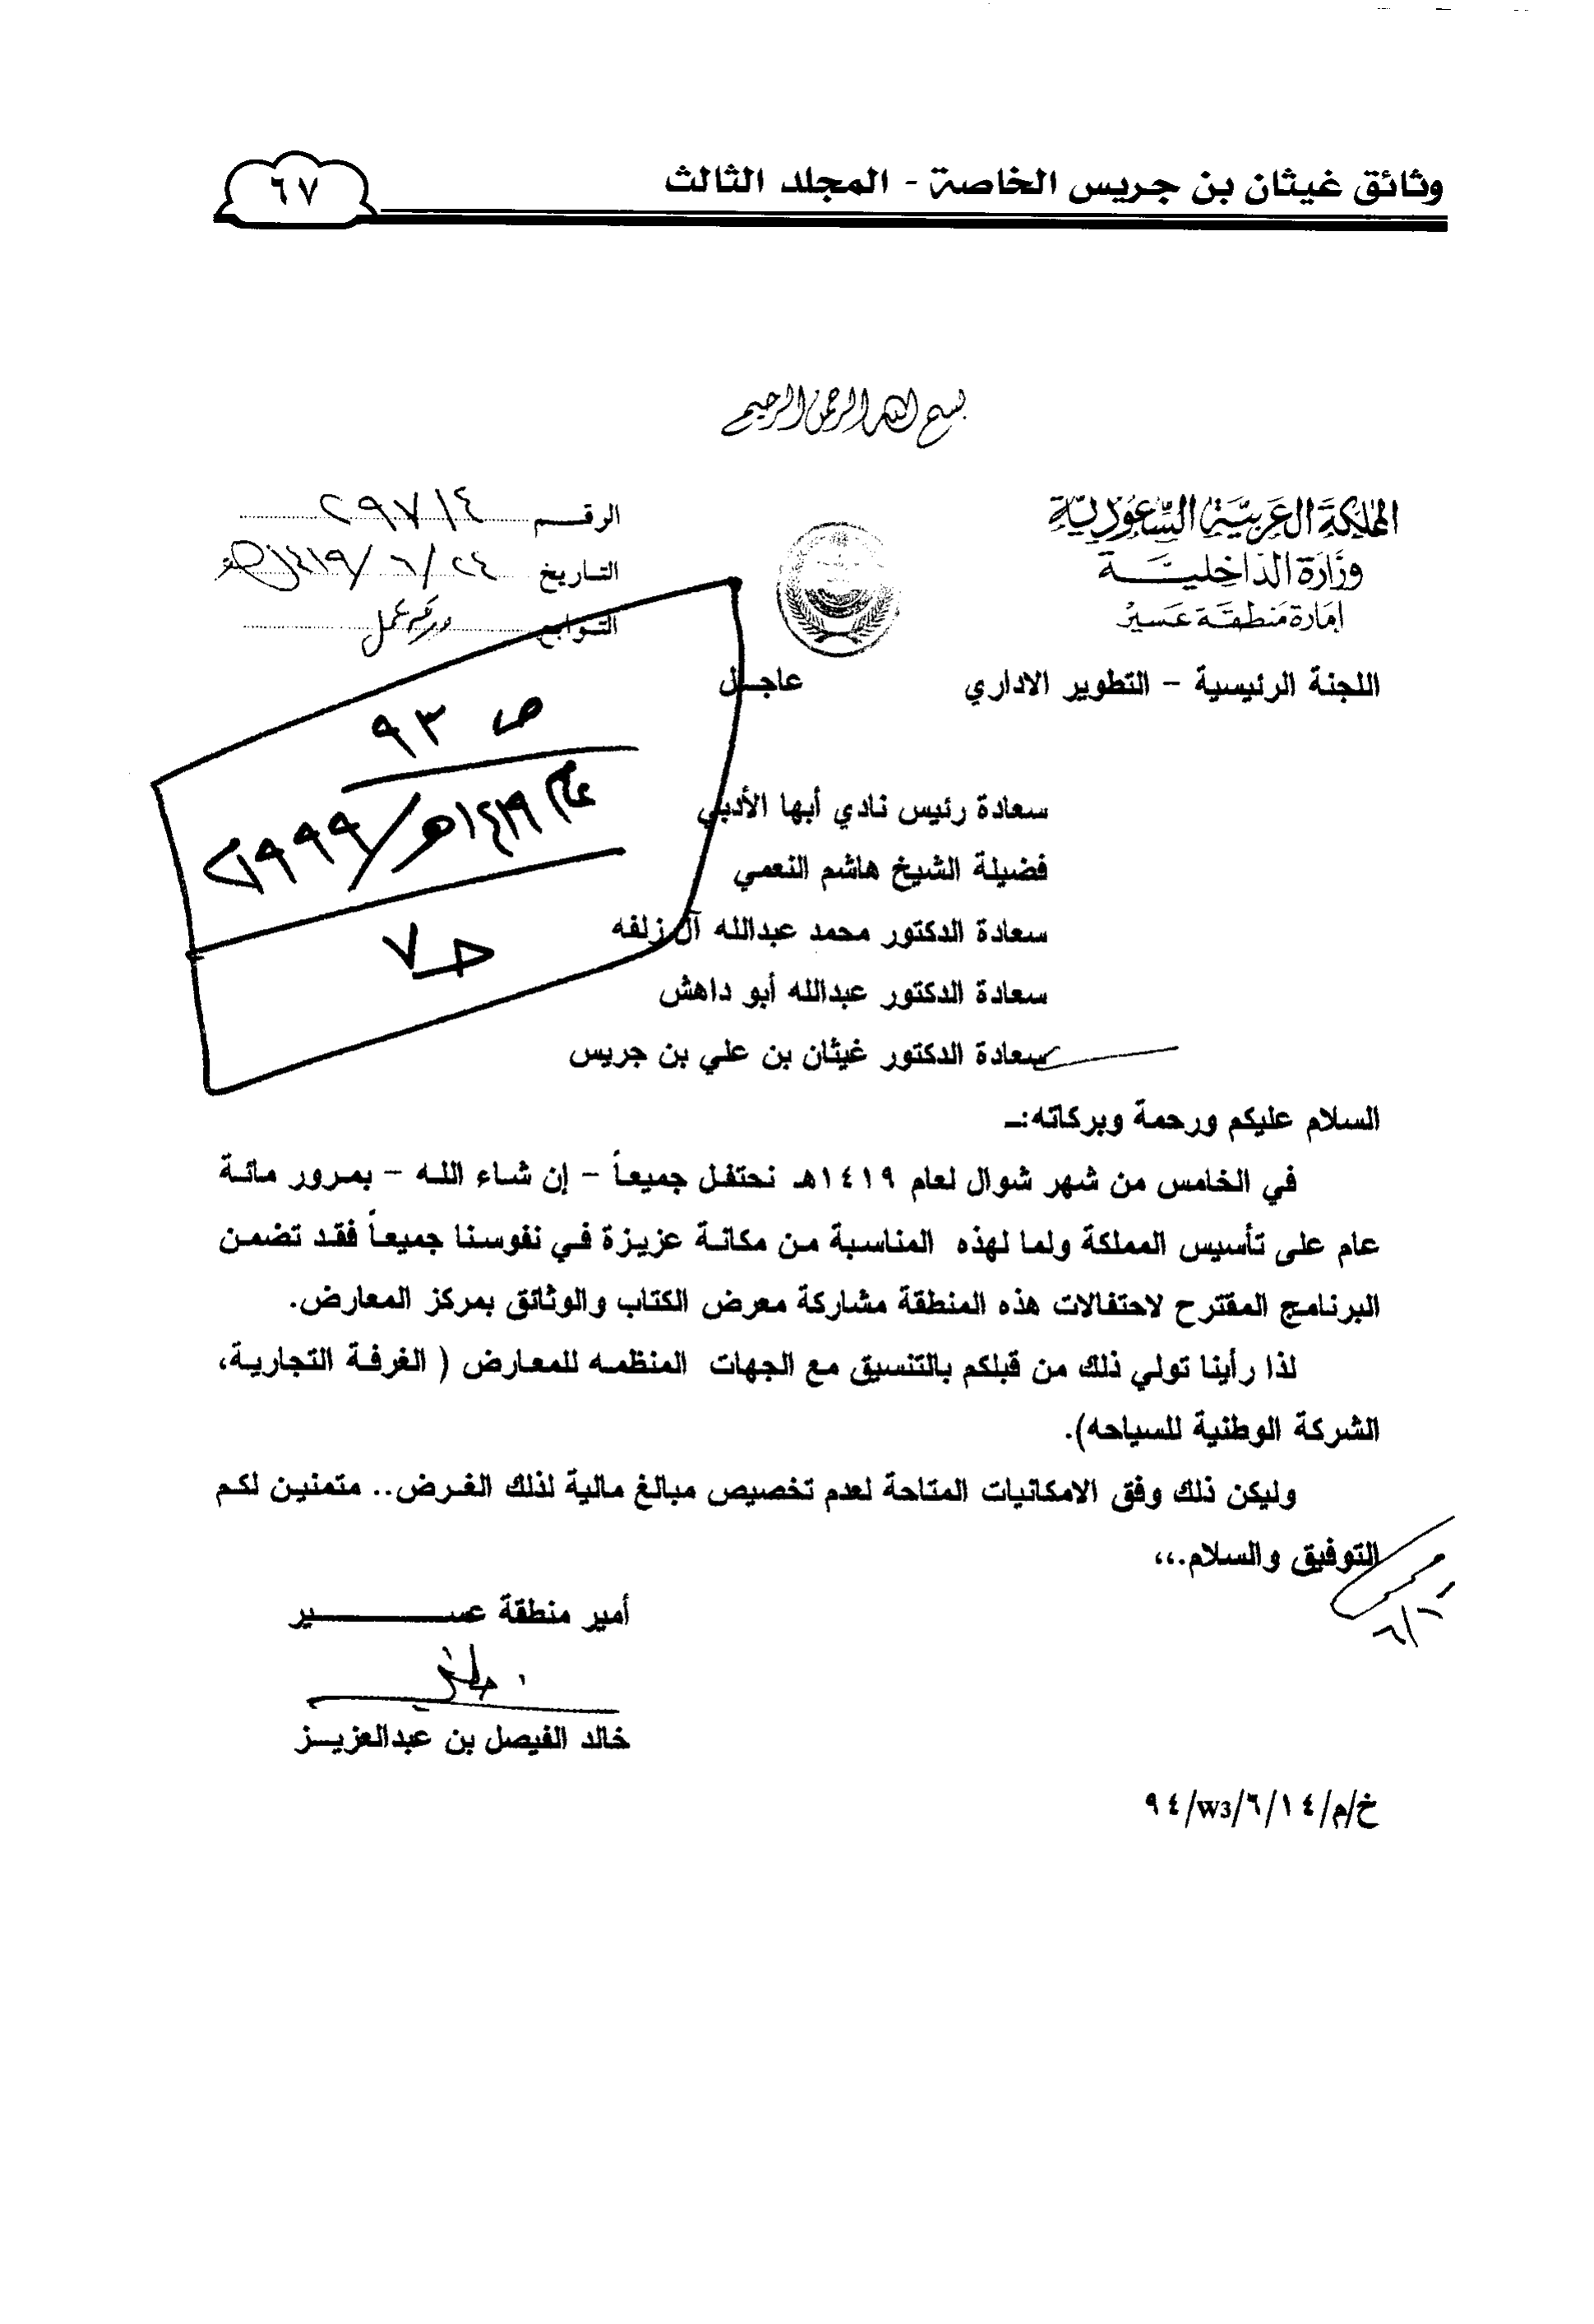 وثائق غيثان بن جريس الخاصة - المجلد الثالث
٦٧
بسم الله الرحمن الرحيم
المملكة العربية السعودية
وزارة الداخلية
إمارة منطقة عسير
الرقم ٢٩٧١٤
التاريخ ٢٤/٦/١٤١٩هـ
التوابع
اللجنة الرئيسية - التطوير الاداري
عاجل
ص ٩٣
عام ١٤١٩هـ/١٩٩٩م
حـ٧
سعادة رئيس نادي أبها الأدبي
فضيلة الشيخ هاشم النعمي
سعادة الدكتور محمد عبدالله آل زلفه
سعادة الدكتور عبدالله أبو داهش
سعادة الدكتور غيثان بن علي بن جريس
السلام عليكم ورحمة وبركاته:ـ
في الخامس من شهر شوال لعام ١٤١٩هـ نحتفل جميعاً - إن شاء الله - بمرور مائة
عام على تأسيس المملكة ولما لهذه المناسبة من مكانة عزيزة في نفوسنا جميعاً فقد تضمن
البرنامج المقترح لاحتفالات هذه المنطقة مشاركة معرض الكتاب والوثائق بمركز المعارض.
لذا رأينا تولي ذلك من قبلكم بالتنسيق مع الجهات المنظمه للمعارض ( الغرفة التجارية،
الشركة الوطنية للسياحه).
وليكن ذلك وفق الامكانيات المتاحة لعدم تخصيص مبالغ مالية لذلك الغرض.. متمنين لكم
التوفيق والسلام.،،
أمير منطقة عسير
خالد الفيصل بن عبدالعزيز
خ/م/١٤/٦/w3/٩٤